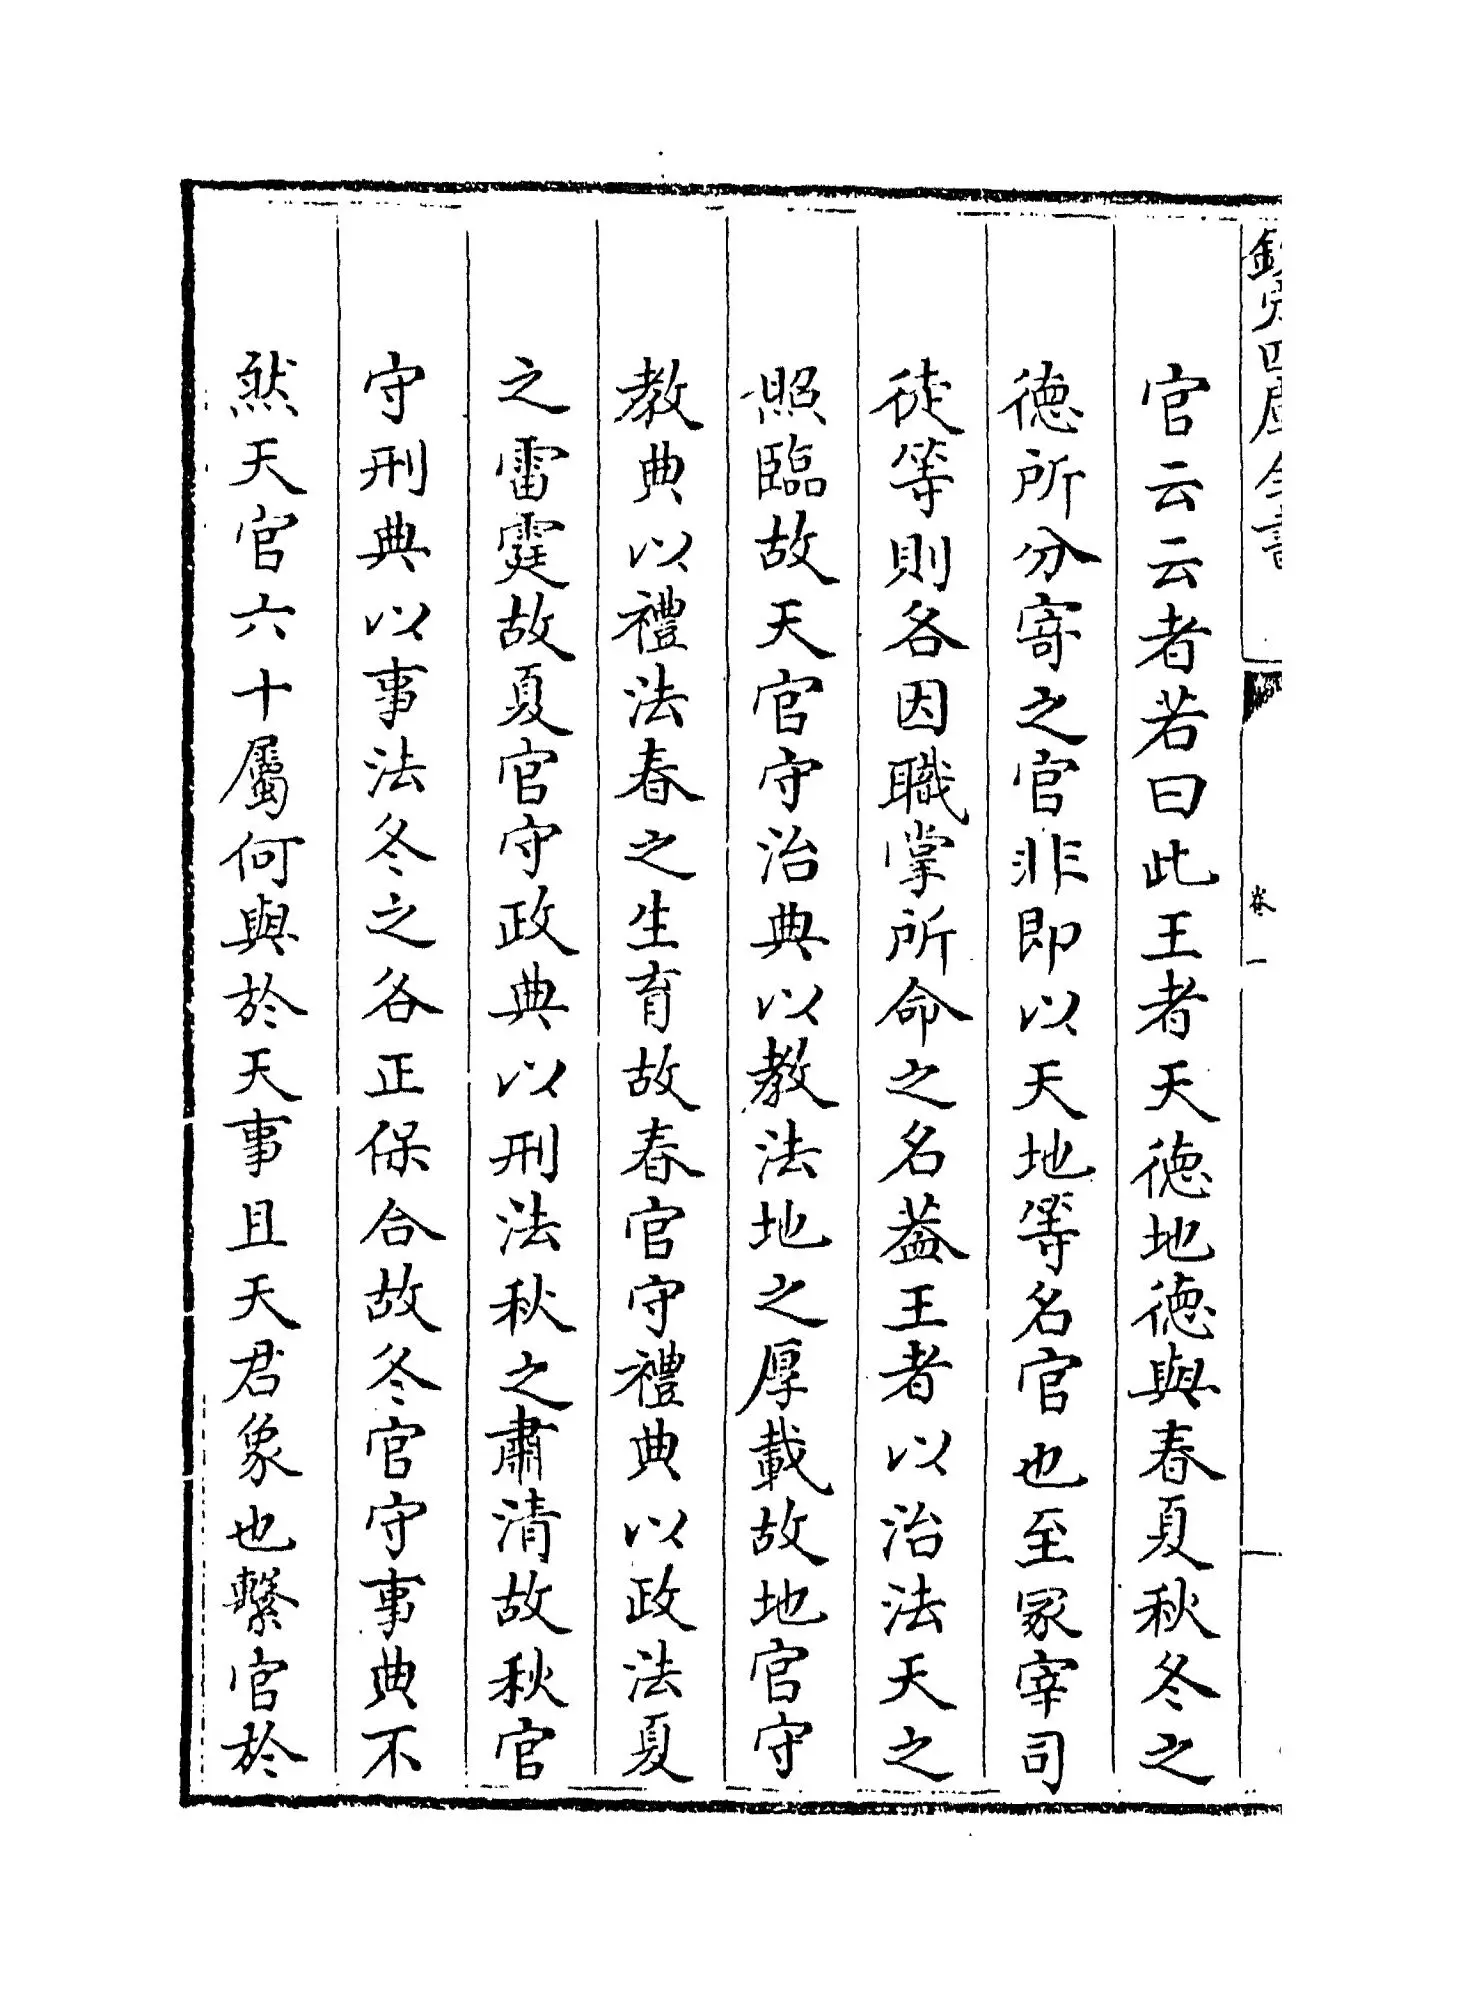 欽定四庫全書
卷一
官云云者若曰此王者天德地德與春夏秋冬之
德所分寄之官非即以天地等名官也至冢宰司
徒等則各因職掌所命之名葢王者以治法天之
照臨故天官守治典以教法地之厚載故地官守
教典以禮法春之生育故春官守禮典以政法夏
之雷霆故夏官守政典以刑法秋之肅清故秋官
守刑典以事法冬之各正保合故冬官守事典不
然天官六十屬何與於天事且天君象也繫官於